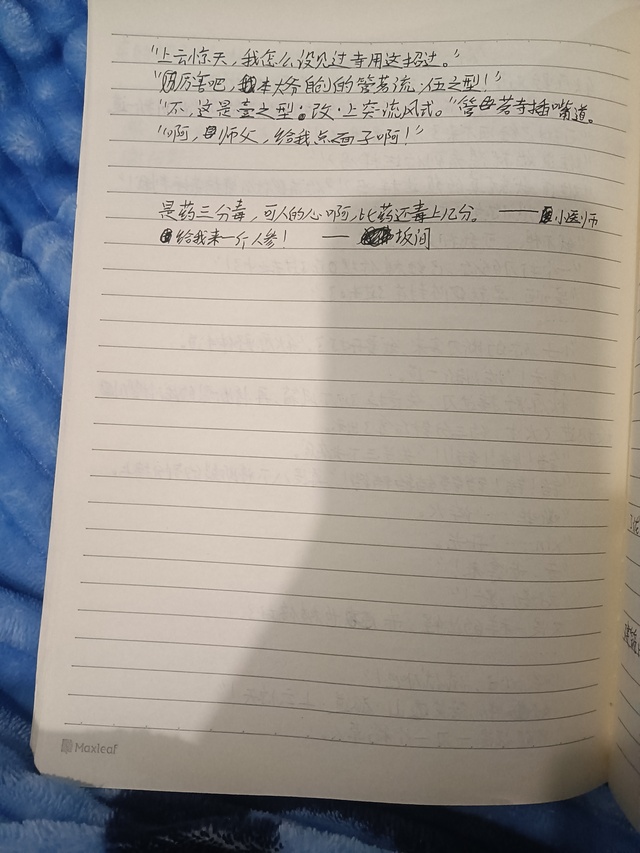 "上云惊天，我怎么没见过寺用这招过。"
"厉害吧，本大爷自创的管若流·伍之型！"
"不，这是壹之型·改·上奈流风式。"管若寺插嘴道。
"啊，师父，给我点面子啊！"
是药三分毒，可人的心啊，比药还毒上几分。——小医师
给我来一斤人参！——坂间
Maxleaf